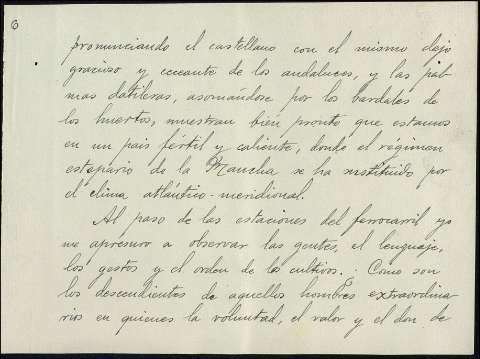 6
pronunciando el castellano con el mismo dejo
gracioso y ceceante de los andaluces, y las pal-
mas datileras, asomándose por los bardales de
los huertos, muestran bien pronto que estamos
en un pais fértil y caliente, donde el régimen
estepario de la Mancha se ha sustituido por
el clima atlántico-meridional.
Al paso de las estaciones del ferrocarril yo
me apresuro a observar las gentes, el lenguaje,
los gestos y el orden de los cultivos. ¿Como son
los descendientes de aquellos hombres extraordina-
rios en quienes la voluntad, el valor y el don de